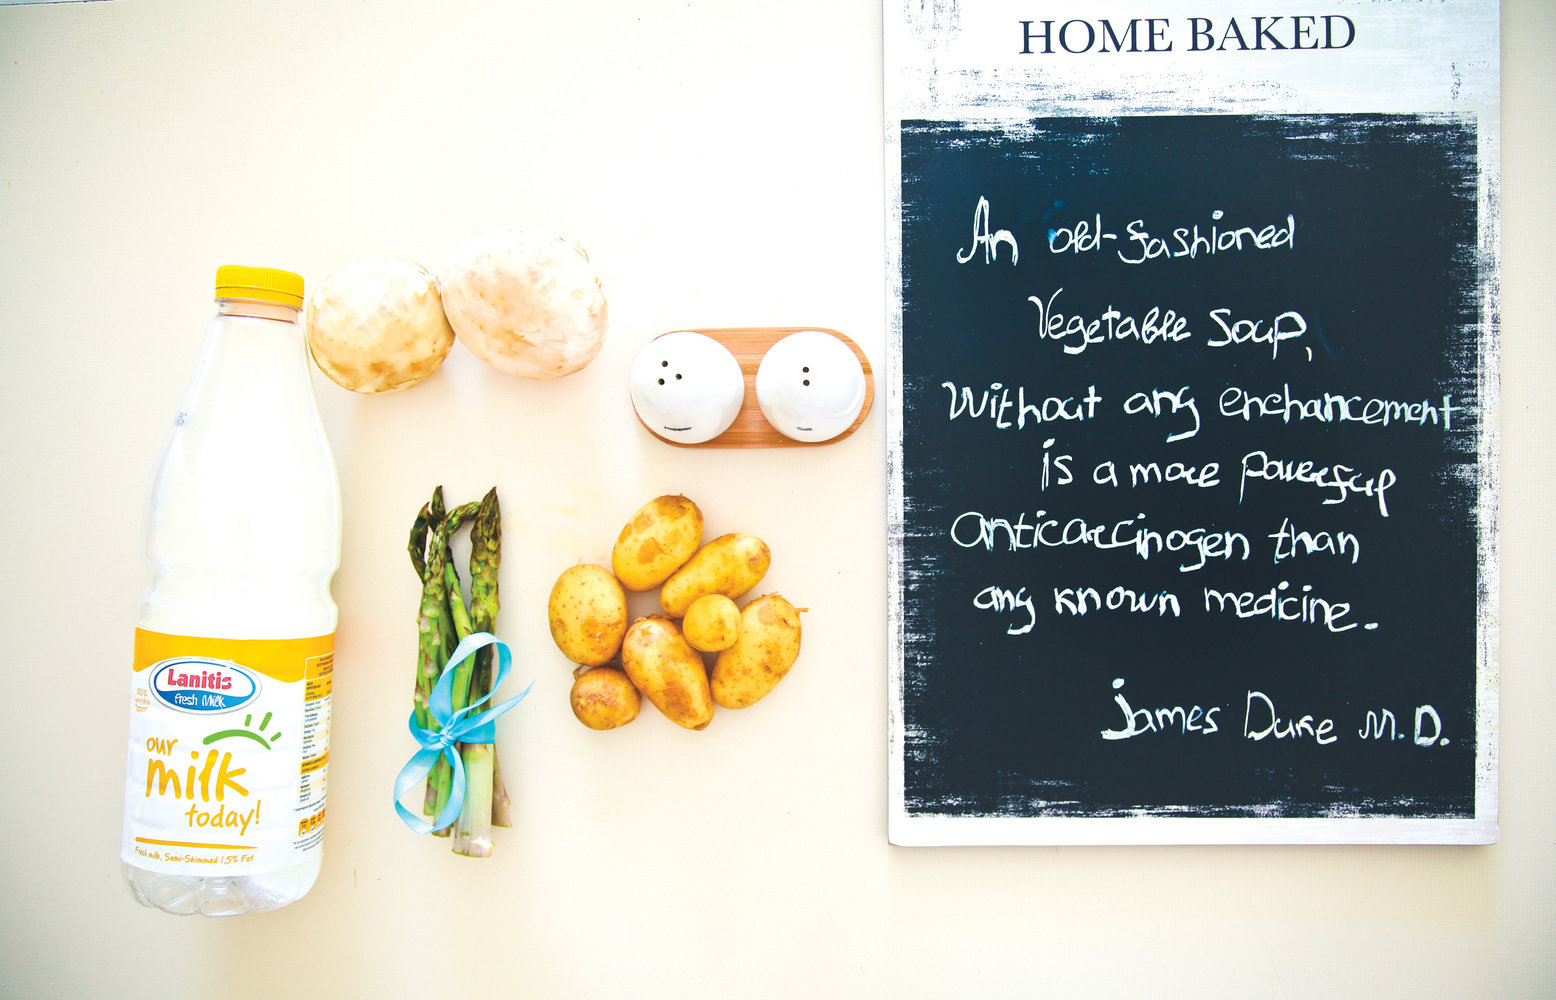 HOME BAKED
An old-fashioned
Vegetable Soup,
Without any enchancement
is a more powerful
anticarcinogen than
any known medicine.
James Duke M.D.
Pepper
Salt
Lanitis
fresh Milk
our
milk
today!
Fresh milk, Semi-Skimmed 1.5% Fat